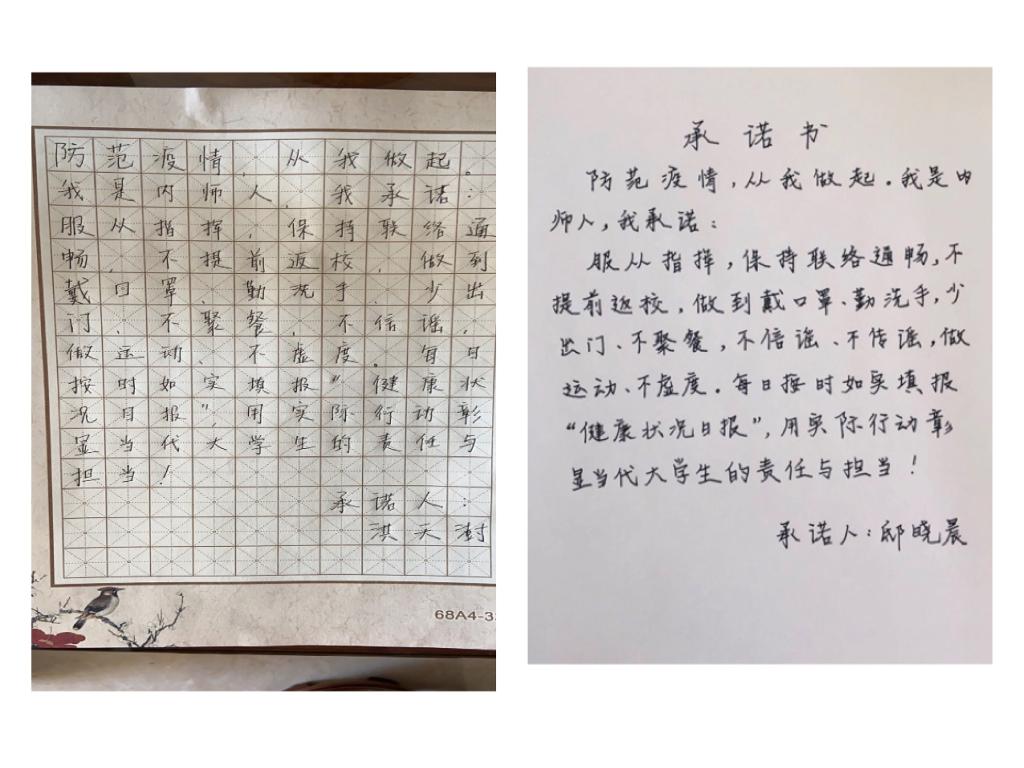 防范疫情,从我做起。
我是内师人,我承诺:
服从指挥,保持联络通
畅,不提前返校,做到
戴口罩、勤洗手、少出
门,不聚餐,不信谣,
做运动、不虚度。每日
按时如实填报“健康状
况日报”,用实际行动彰
显当代大学生的责任与
担当!
承诺人:
洪天澍
68A4-3
承诺书
防范疫情,从我做起。我是内
师人,我承诺:
服从指挥,保持联络通畅,不
提前返校,做到戴口罩、勤洗手,少
出门、不聚餐,不信谣、不传谣,做
运动、不虚度。每日按时如实填报
“健康状况日报”,用实际行动彰
显当代大学生的责任与担当!
承诺人:邸晓晨